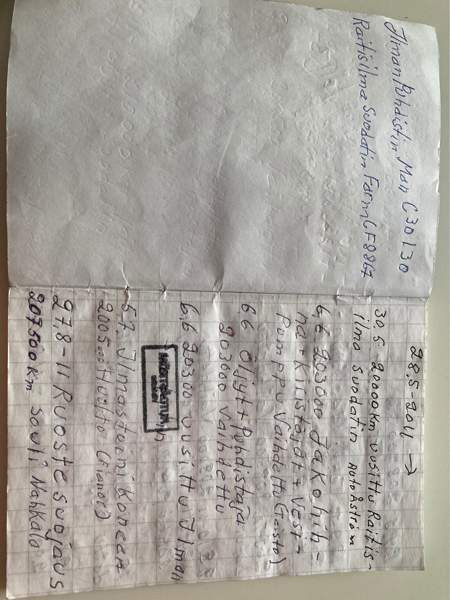 Ilman Puhdistin Man C30130
Raitisilma Suodatin Farm CF8867
28.5-2011 →
30.5-20000Km uusittu Raitis-
ilma Suodatin Auto Åström
6.6 203000 Jakohih-
na+Kiristäjät+Vesi-
Pumppu Vaihdettu
6.6 Öljyt+Puhdistaja
203000 Vaihdettu
6.6 20300 uusittu Ilman
5.7 Ilmastoini Koneen
200500 Huolto
27.8-11 Ruostesuojaus
207000 Km Sauli Nahkala